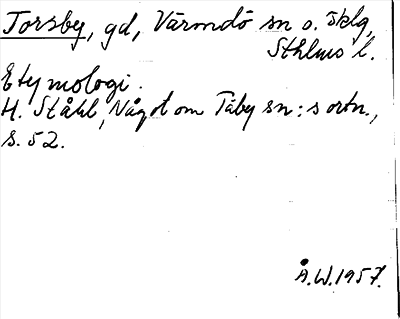 Torsby, gd, Värmdö sn o. sklg,
Sthlms l.
Etymologi.
H. Ståhl, Något om Täby sn:s ortn.,
s. 52.
Å.W.1957.